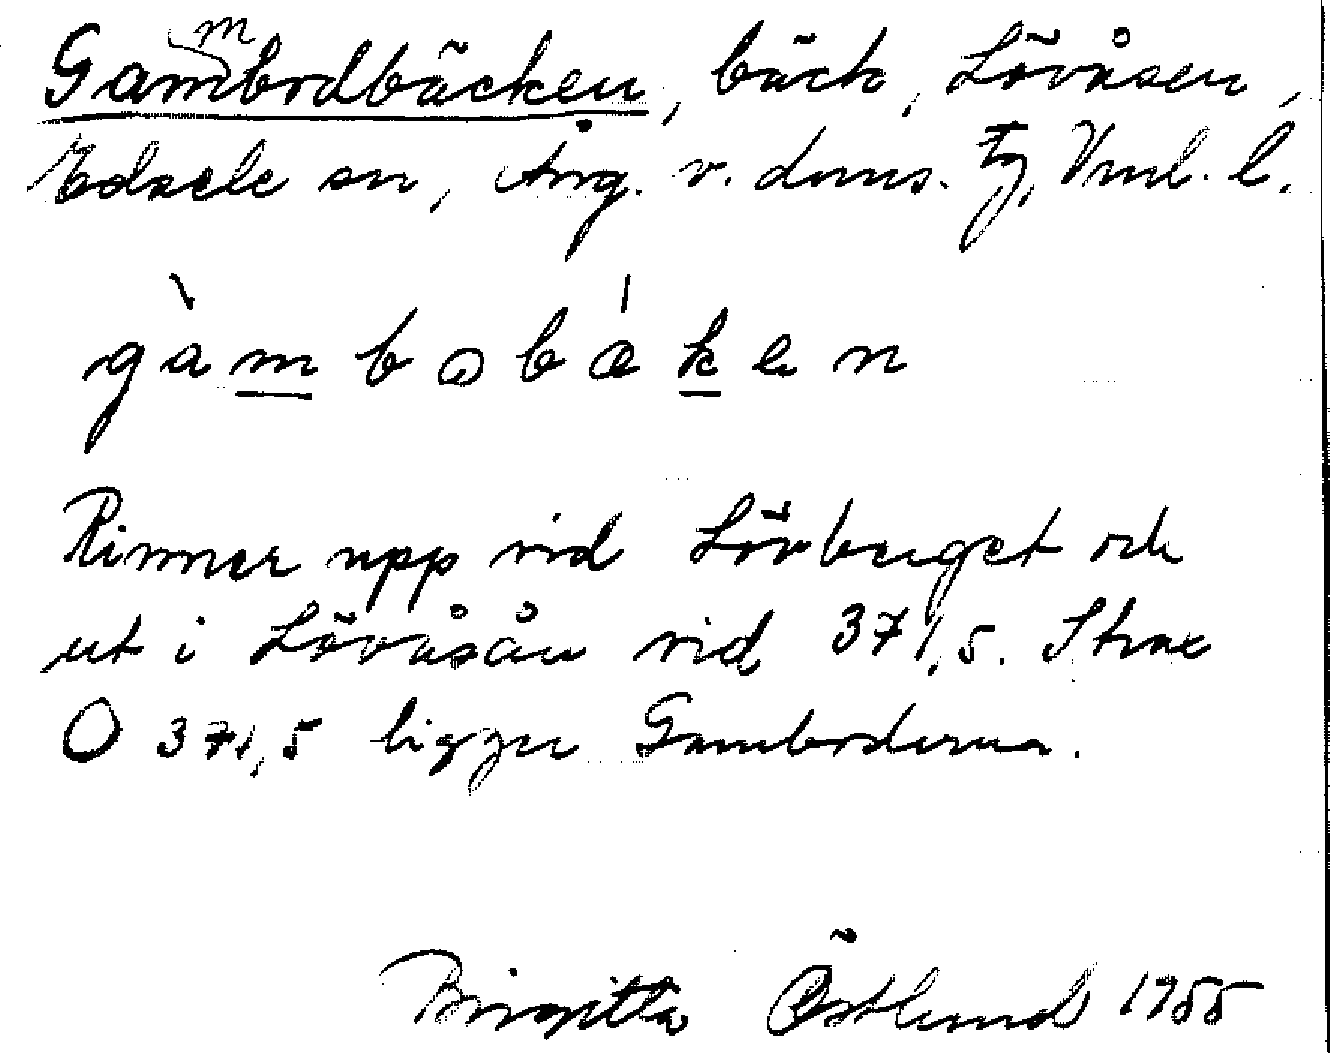 Gammbodbäcken, bäck, Lövåsen,
Edsele sn, Ång. v. doms. tg, Vnl. l.
gàmbobǽken
Rinner upp vid Lövberget och
ut i Lövåsån vid 371,5. Strax
O 371,5 ligger Gambodarna.
Birgitta Östlund 1955